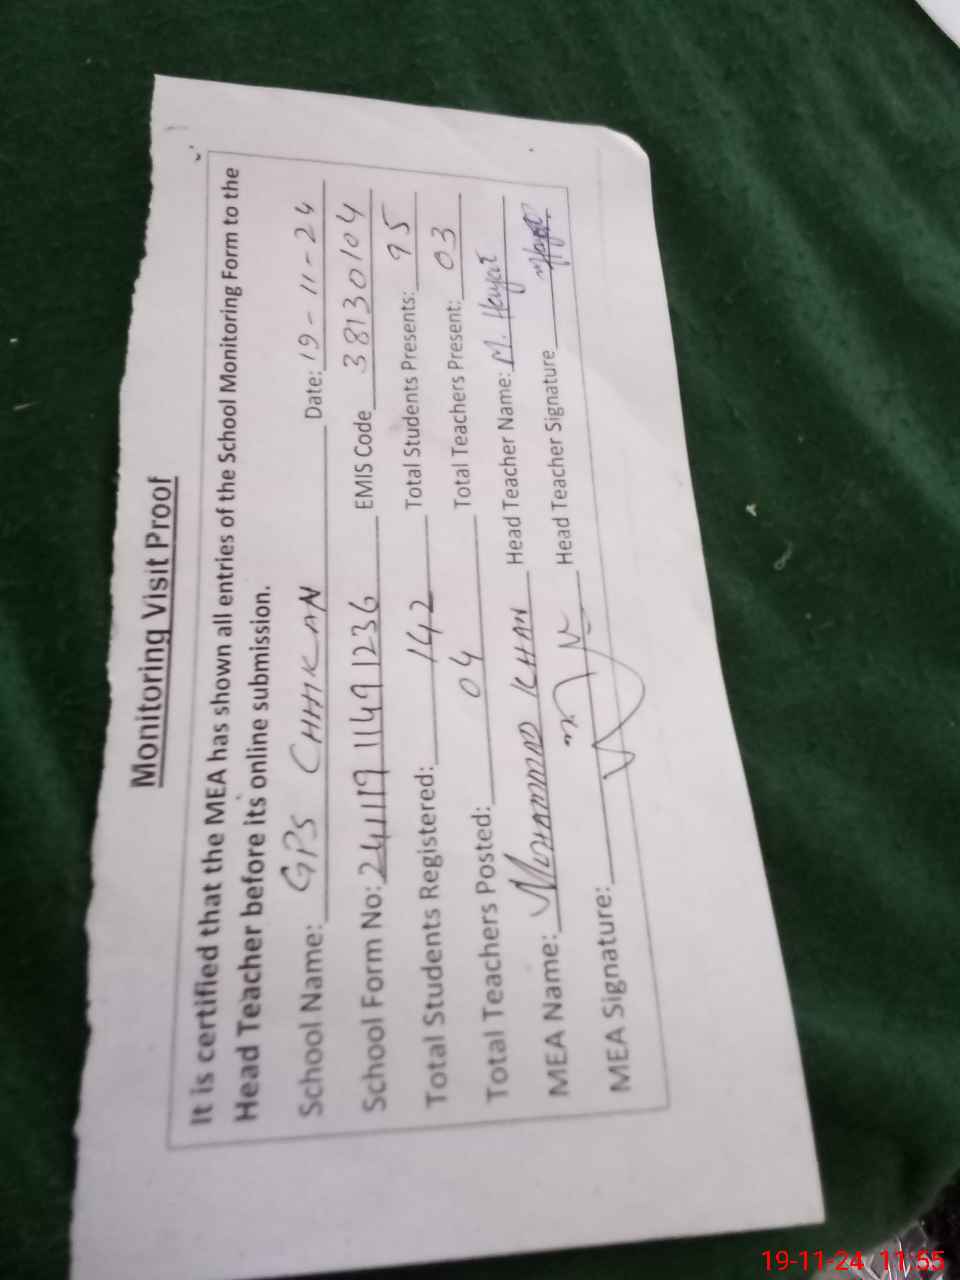 Monitoring Visit Proof
It is certified that the MEA has shown all entries of the School Monitoring Form to the
Head Teacher before its online submission.
School Name: GPS CHHIKAN Date: 19-11-24
School Form No: 24111911491236 EMIS Code 38130104
Total Students Registered: 142 Total Students Presents: 95
Total Teachers Posted: 04 Total Teachers Present: 03
MEA Name: MUHAMMAD KHAN Head Teacher Name: M. Hayat
MEA Signature: Head Teacher Signature
19-11-24 11:55